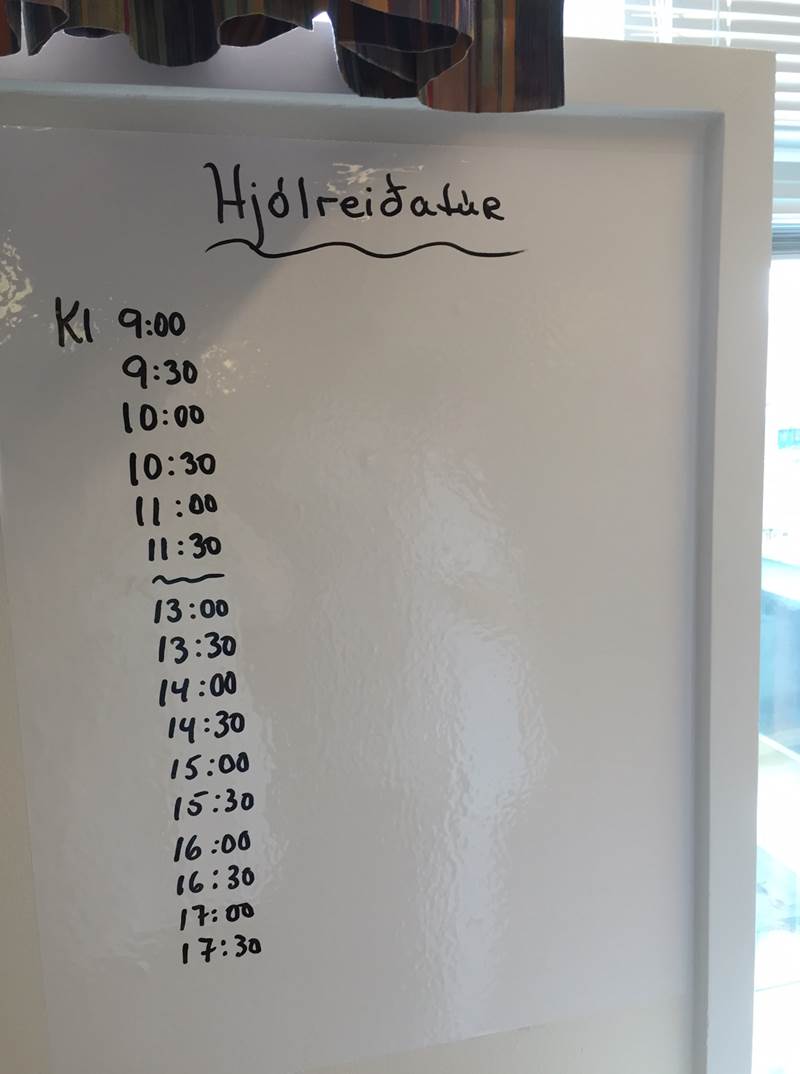 Hjólreiðatúr
Kl 9:00
9:30
10:00
10:30
11:00
11:30
13:00
13:30
14:00
14:30
15:00
15:30
16:00
16:30
17:00
17:30